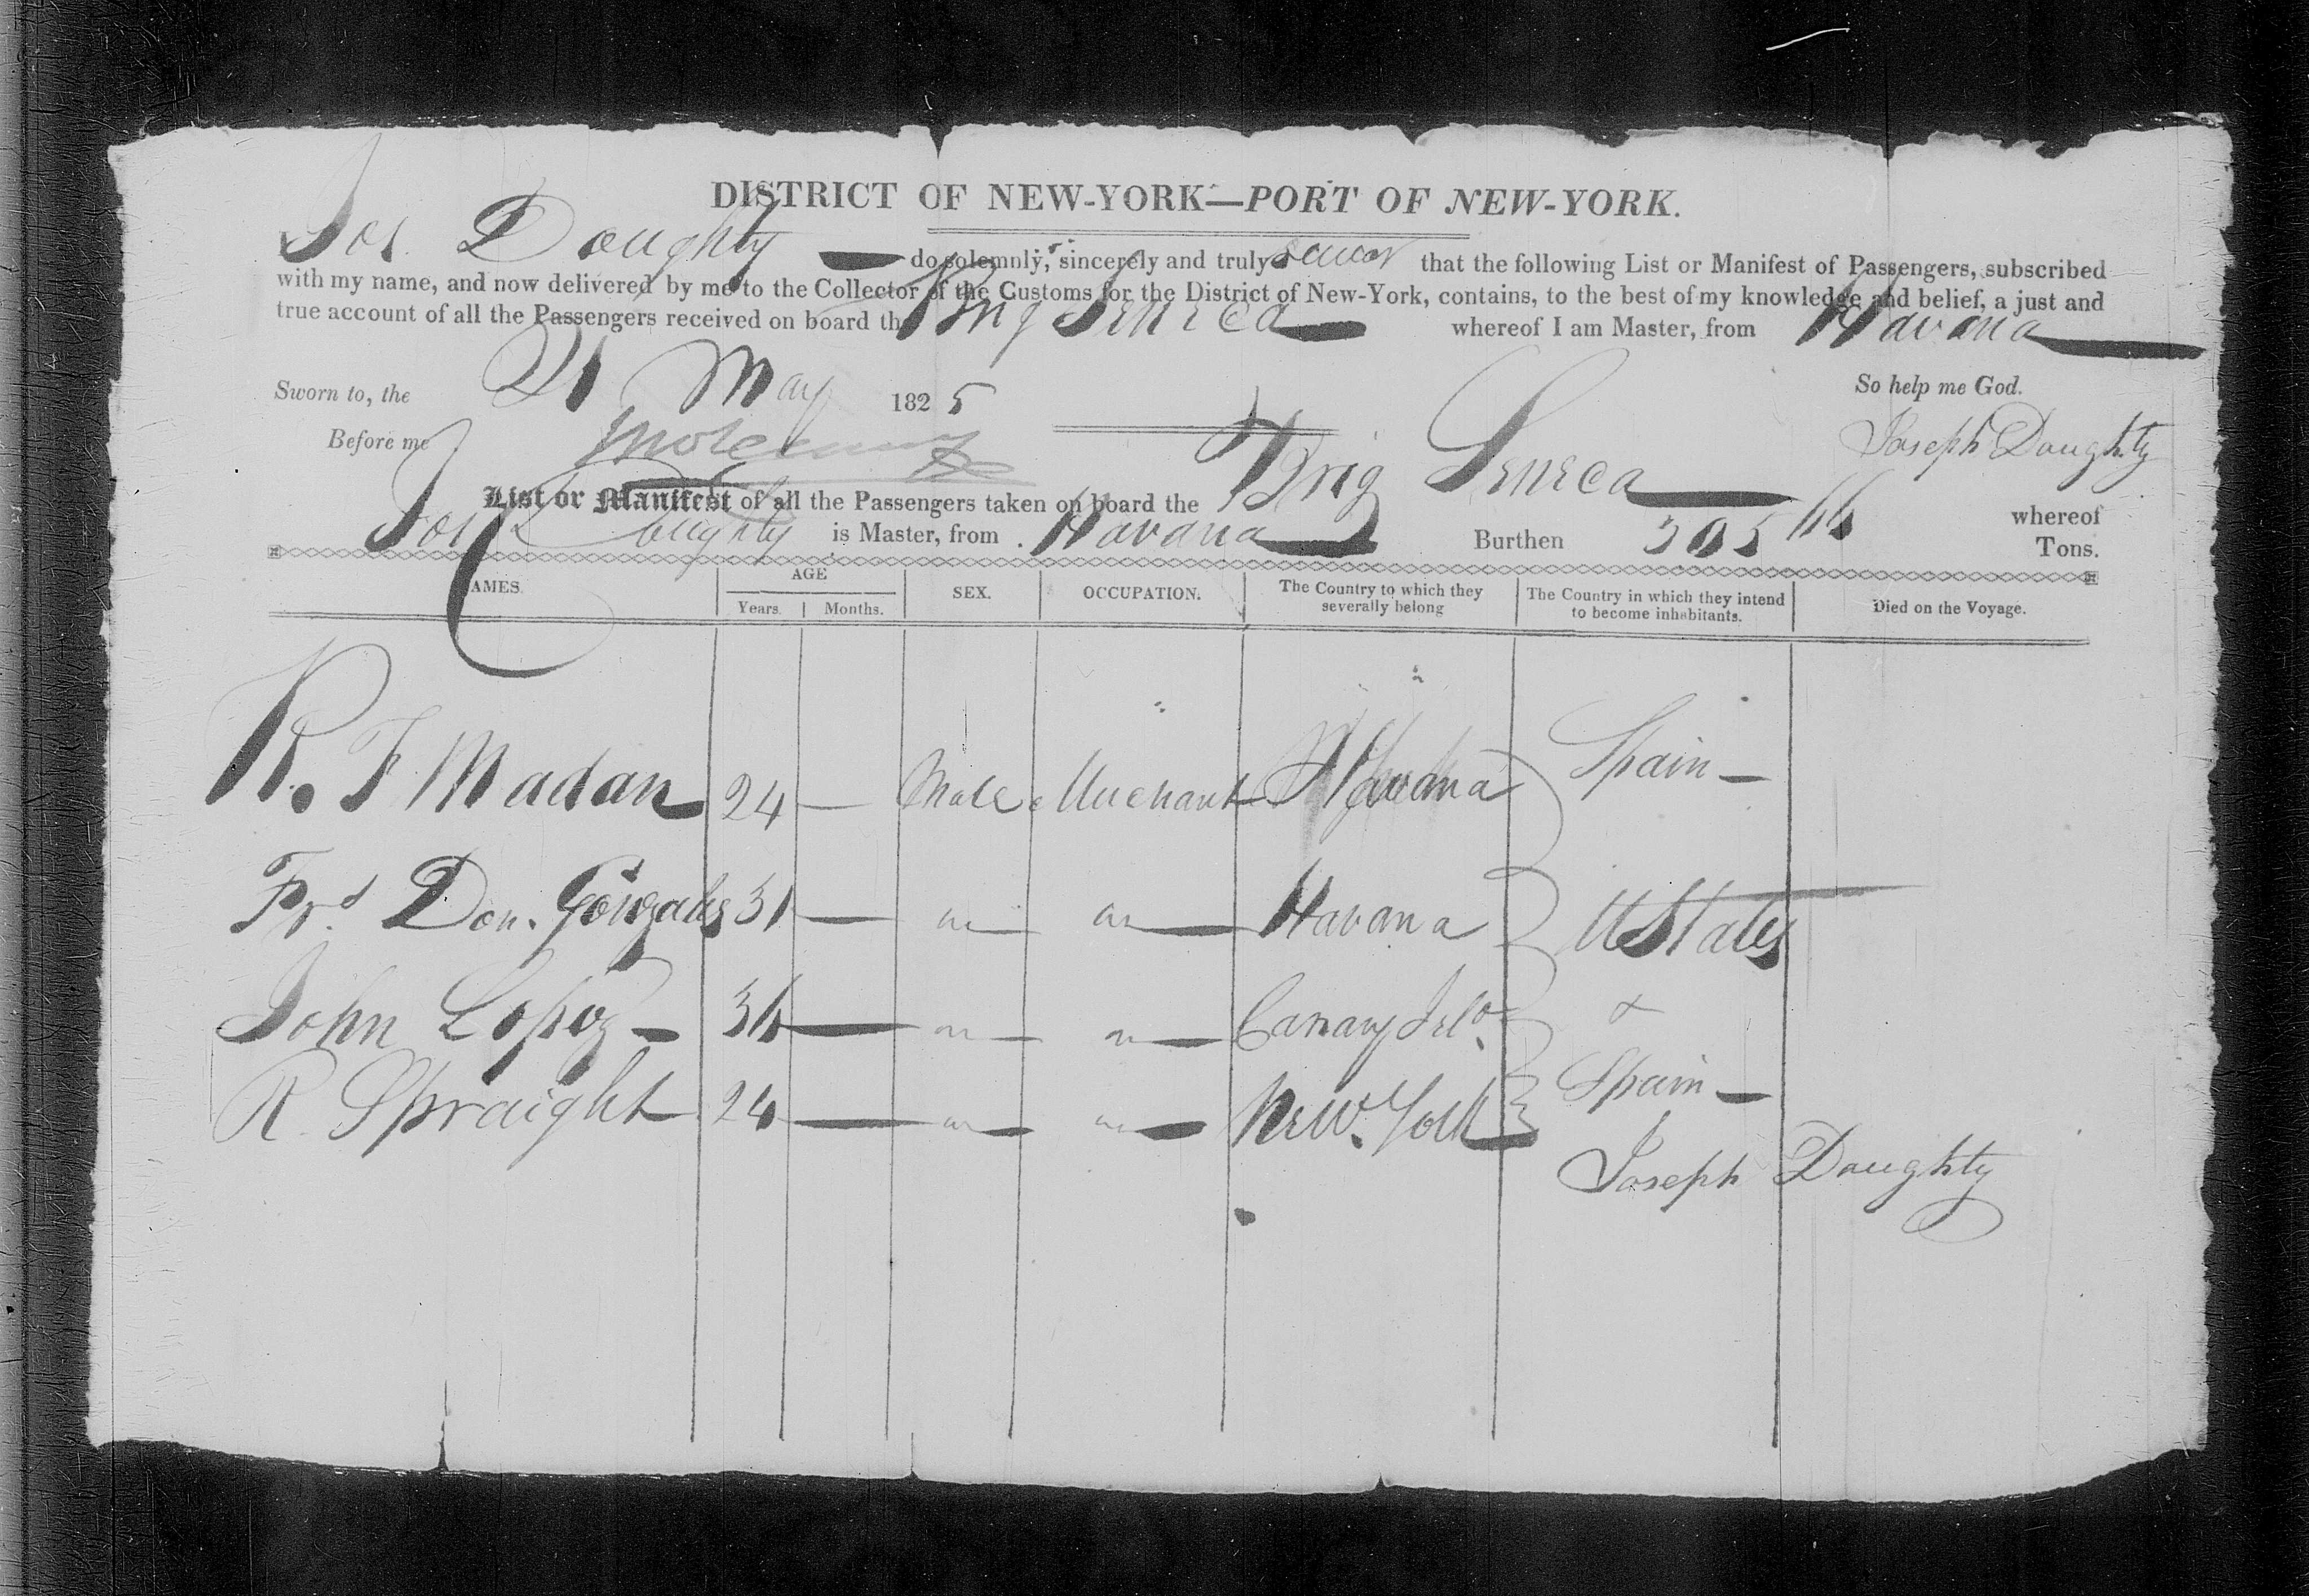 DISTRICT OF NEW-YORK—PORT OF NEW-YORK.
Jos. Doughty — do solemnly, sincerely and truly swear that the following List or Manifest of Passengers, subscribed
with my name, and now delivered by me to the Collector of the Customs for the District of New-York, contains, to the best of my knowledge and belief, a just and
true account of all the Passengers received on board the Brig Seneca whereof I am Master, from Havana
Sworn to, the 21 May 1825 So help me God.
Before me Joseph Doughty
List or Manifest of all the Passengers taken on board the Brig Seneca whereof
Jos Doughty is Master, from Havana Burthen 305 Tons.
NAMES. AGE SEX. OCCUPATION. The Country to which they severally belong The Country in which they intend to become inhabitants. Died on the Voyage.
Years. Months.
R. F Madan 24 — Male Merchant Havana Spain —
Frd Don. Gonzales 31 — " " Havana U States
John Lopez — 36 — " " Canary Isls. &
R. Spraight 24 — " " New York Spain —
Joseph Doughty